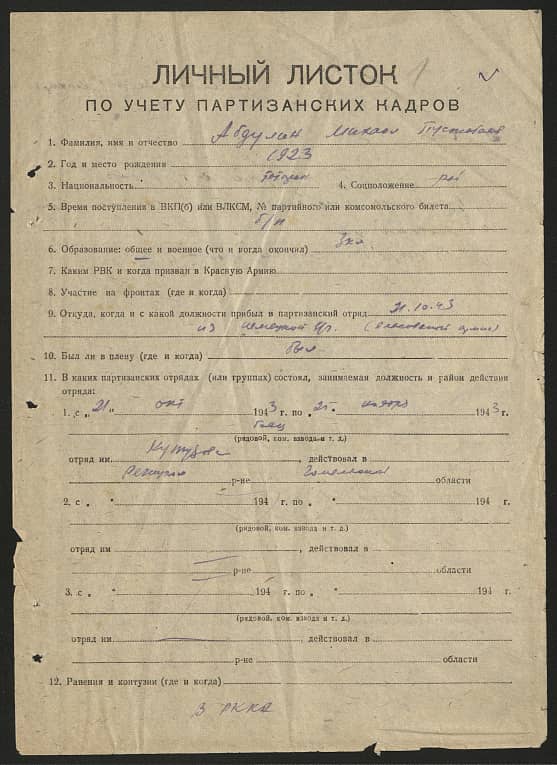 ЛИЧНЫЙ ЛИСТОК
ПО УЧЕТУ ПАРТИЗАНСКИХ КАДРОВ
1. Фамилия, имя и отчество Абдулин Михаил
2. Год и место рождения 1923
3. Национальность татарин 4. Соцположение раб
5. Время поступления в ВКП(б) или ВЛКСМ, № партийного или комсомольского билета
б/п
6. Образование: общее и военное (что и когда окончил) 3 кл
7. Каким РВК и когда призван в Красную Армию
8. Участие на фронтах (где и когда)
9. Откуда, когда и с какой должности прибыл в партизанский отряд 21.10.43
из немецкой (власовской армии)
10. Был ли в плену (где и когда) был
11. В каких партизанских отрядах (или группах) состоял, занимаемая должность и район действия
отряда:
1. с „21„ окт 1943 г. по „25„ ноября 1943 г.
боец
(рядовой, ком. взвода и т. д.)
отряд им. Кутузова, действовал в
Речицком р-не Гомельской области
2. с „ “ 194 г. по „ “ 194 г.
(рядовой, ком. взвода и т. д.)
отряд им. , действовал в
р-не области
3. с „ “ 194 г. по „ “ 194 г.
(рядовой, ком. взвода и т. д.)
отряд им. , действовал в
р-не области
12. Ранения и контузии (где и когда)
В РККА